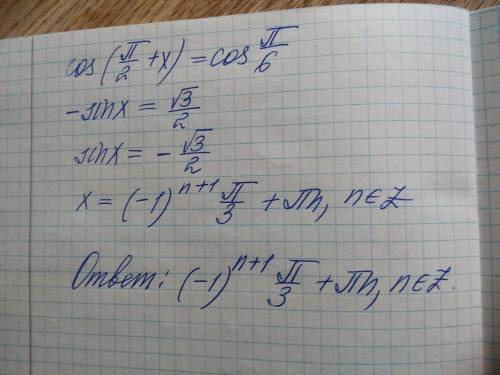 cos(π/2 + x) = cos π/6
-sin x = √3/2
sin x = - √3/2
x = (-1)^(n+1) π/3 + πn, n∈Z
Ответ: (-1)^(n+1) π/3 + πn, n∈Z.